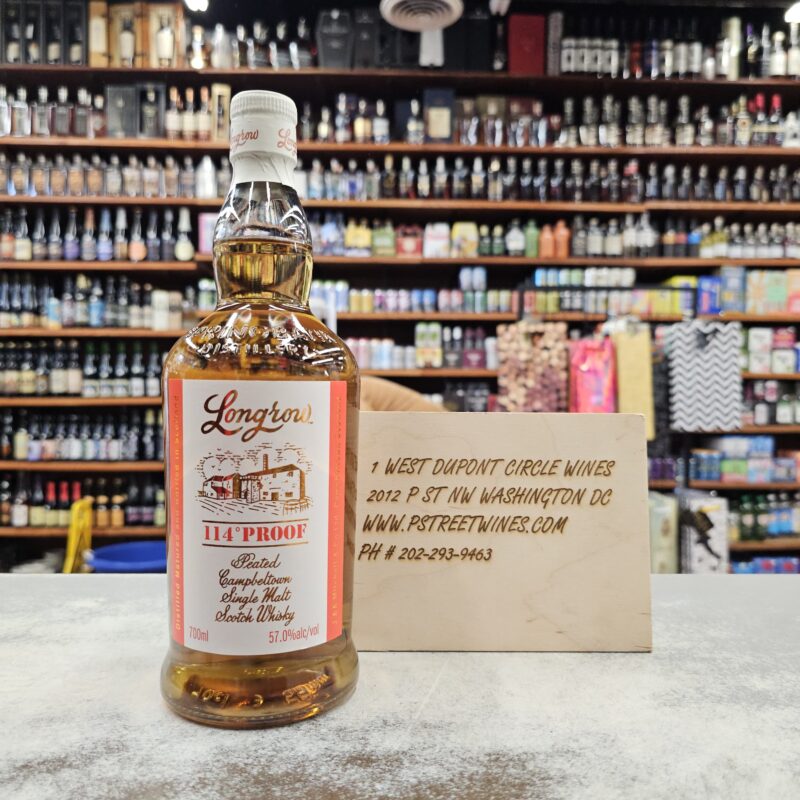 Longrow
Longrow
114° PROOF
Peated
Campbeltown
Single Malt
Scotch Whisky
700ml
57.0%alc/vol
Distilled Matured and Bottled in
1 WEST DUPONT CIRCLE WINES
2012 P ST NW WASHINGTON DC
WWW.PSTREETWINES.COM
PH # 202-293-9463